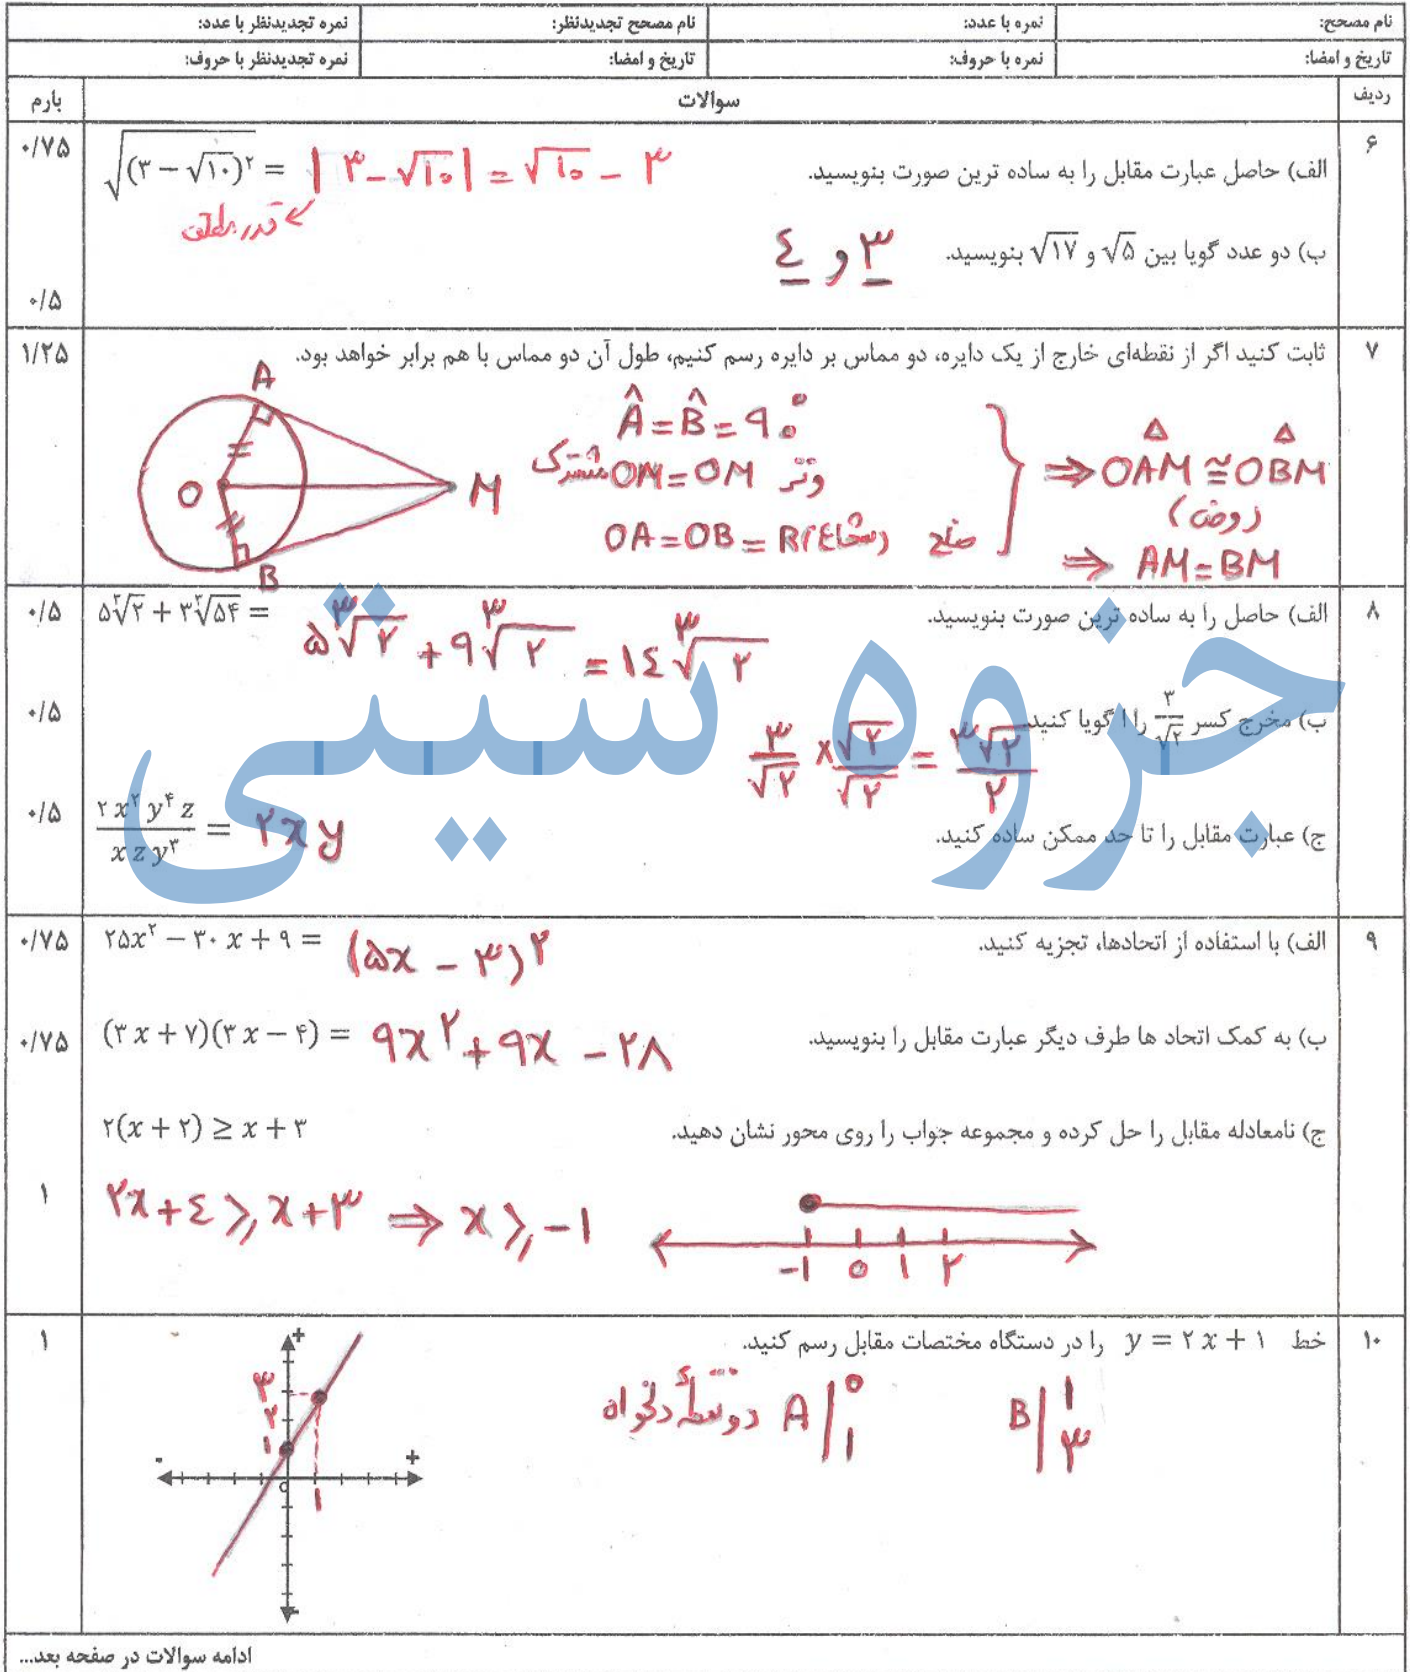 نام مصحح: نمره با عدد: نام مصحح تجدیدنظر: نمره تجدیدنظر با عدد:
تاریخ و امضا: نمره با حروف: تاریخ و امضا: نمره تجدیدنظر با حروف:
ردیف سوالات بارم
۶ الف) حاصل عبارت مقابل را به ساده ترین صورت بنویسید. √(۳ − √۱۰)² = |۳ − √۱۰| = √۱۰ − ۳ ۰/۷۵
قدر مطلق
ب) دو عدد گویا بین √۵ و √۱۷ بنویسید. ۳ و ٤ ۰/۵
۷ ثابت کنید اگر از نقطه‌ای خارج از یک دایره، دو مماس بر دایره رسم کنیم، طول آن دو مماس با هم برابر خواهد بود. ۱/۲۵
A
O
M
B
Â = B̂ = ۹۰°
وتر OM = OM مشترک
ضلع OA = OB = R شعاع
⇒ OAM ≅ OBM
(وض)
⇒ AM = BM
۸ الف) حاصل را به ساده ترین صورت بنویسید. ۵∛۲ + ۳∛۵۴ = ۵∛۲ + ۹∛۲ = ۱٤∛۲ ۰/۵
ب) مخرج کسر ۳/√۲ را گویا کنید. ۳/√۲ × √۲/√۲ = ۳√۲/۲ ۰/۵
ج) عبارت مقابل را تا حد ممکن ساده کنید. ۲x²y⁴z / xzy³ = ۲xy ۰/۵
جزوه سیتی
۹ الف) با استفاده از اتحادها، تجزیه کنید. ۲۵x² − ۳۰x + ۹ = (۵x − ۳)² ۰/۷۵
ب) به کمک اتحاد ها طرف دیگر عبارت مقابل را بنویسید. (۳x + ۷)(۳x − ۴) = ۹x² + ۹x − ۲۸ ۰/۷۵
ج) نامعادله مقابل را حل کرده و مجموعه جواب را روی محور نشان دهید. ۲(x + ۲) ≥ x + ۳
۲x + ٤ ≥ x + ۳ ⇒ x ≥ −۱ ۱
−۱ ۰ ۱ ۲
۱۰ خط y = ۲x + ۱ را در دستگاه مختصات مقابل رسم کنید. ۱
دو نقطهٔ دلخواه A|۰ ۱ B|۱ ۳
+
۳
۲
۱
- +
o
۱
-
ادامه سوالات در صفحه بعد...